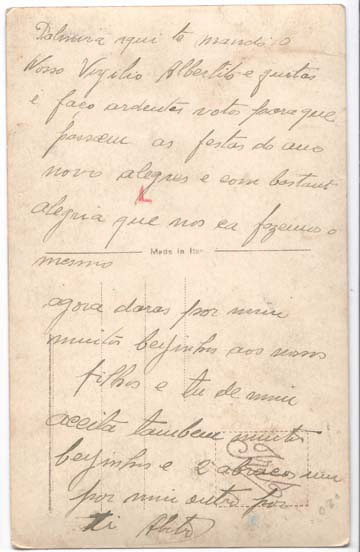 Palmira aqui te mando o
Nosso Virgilio Albertito e juntos
e faço ardentes votos para que
possem as festas do ano
novo alegres e com bastant
alegria que nos ca fazemos o
Made in Italy
mesmo
agora daras por mim
muitos beijinhos aos nossos
filhos e tu de mim
aceita tambem muitos
beijinhos e 2 abraços um
por mim outro por
ti